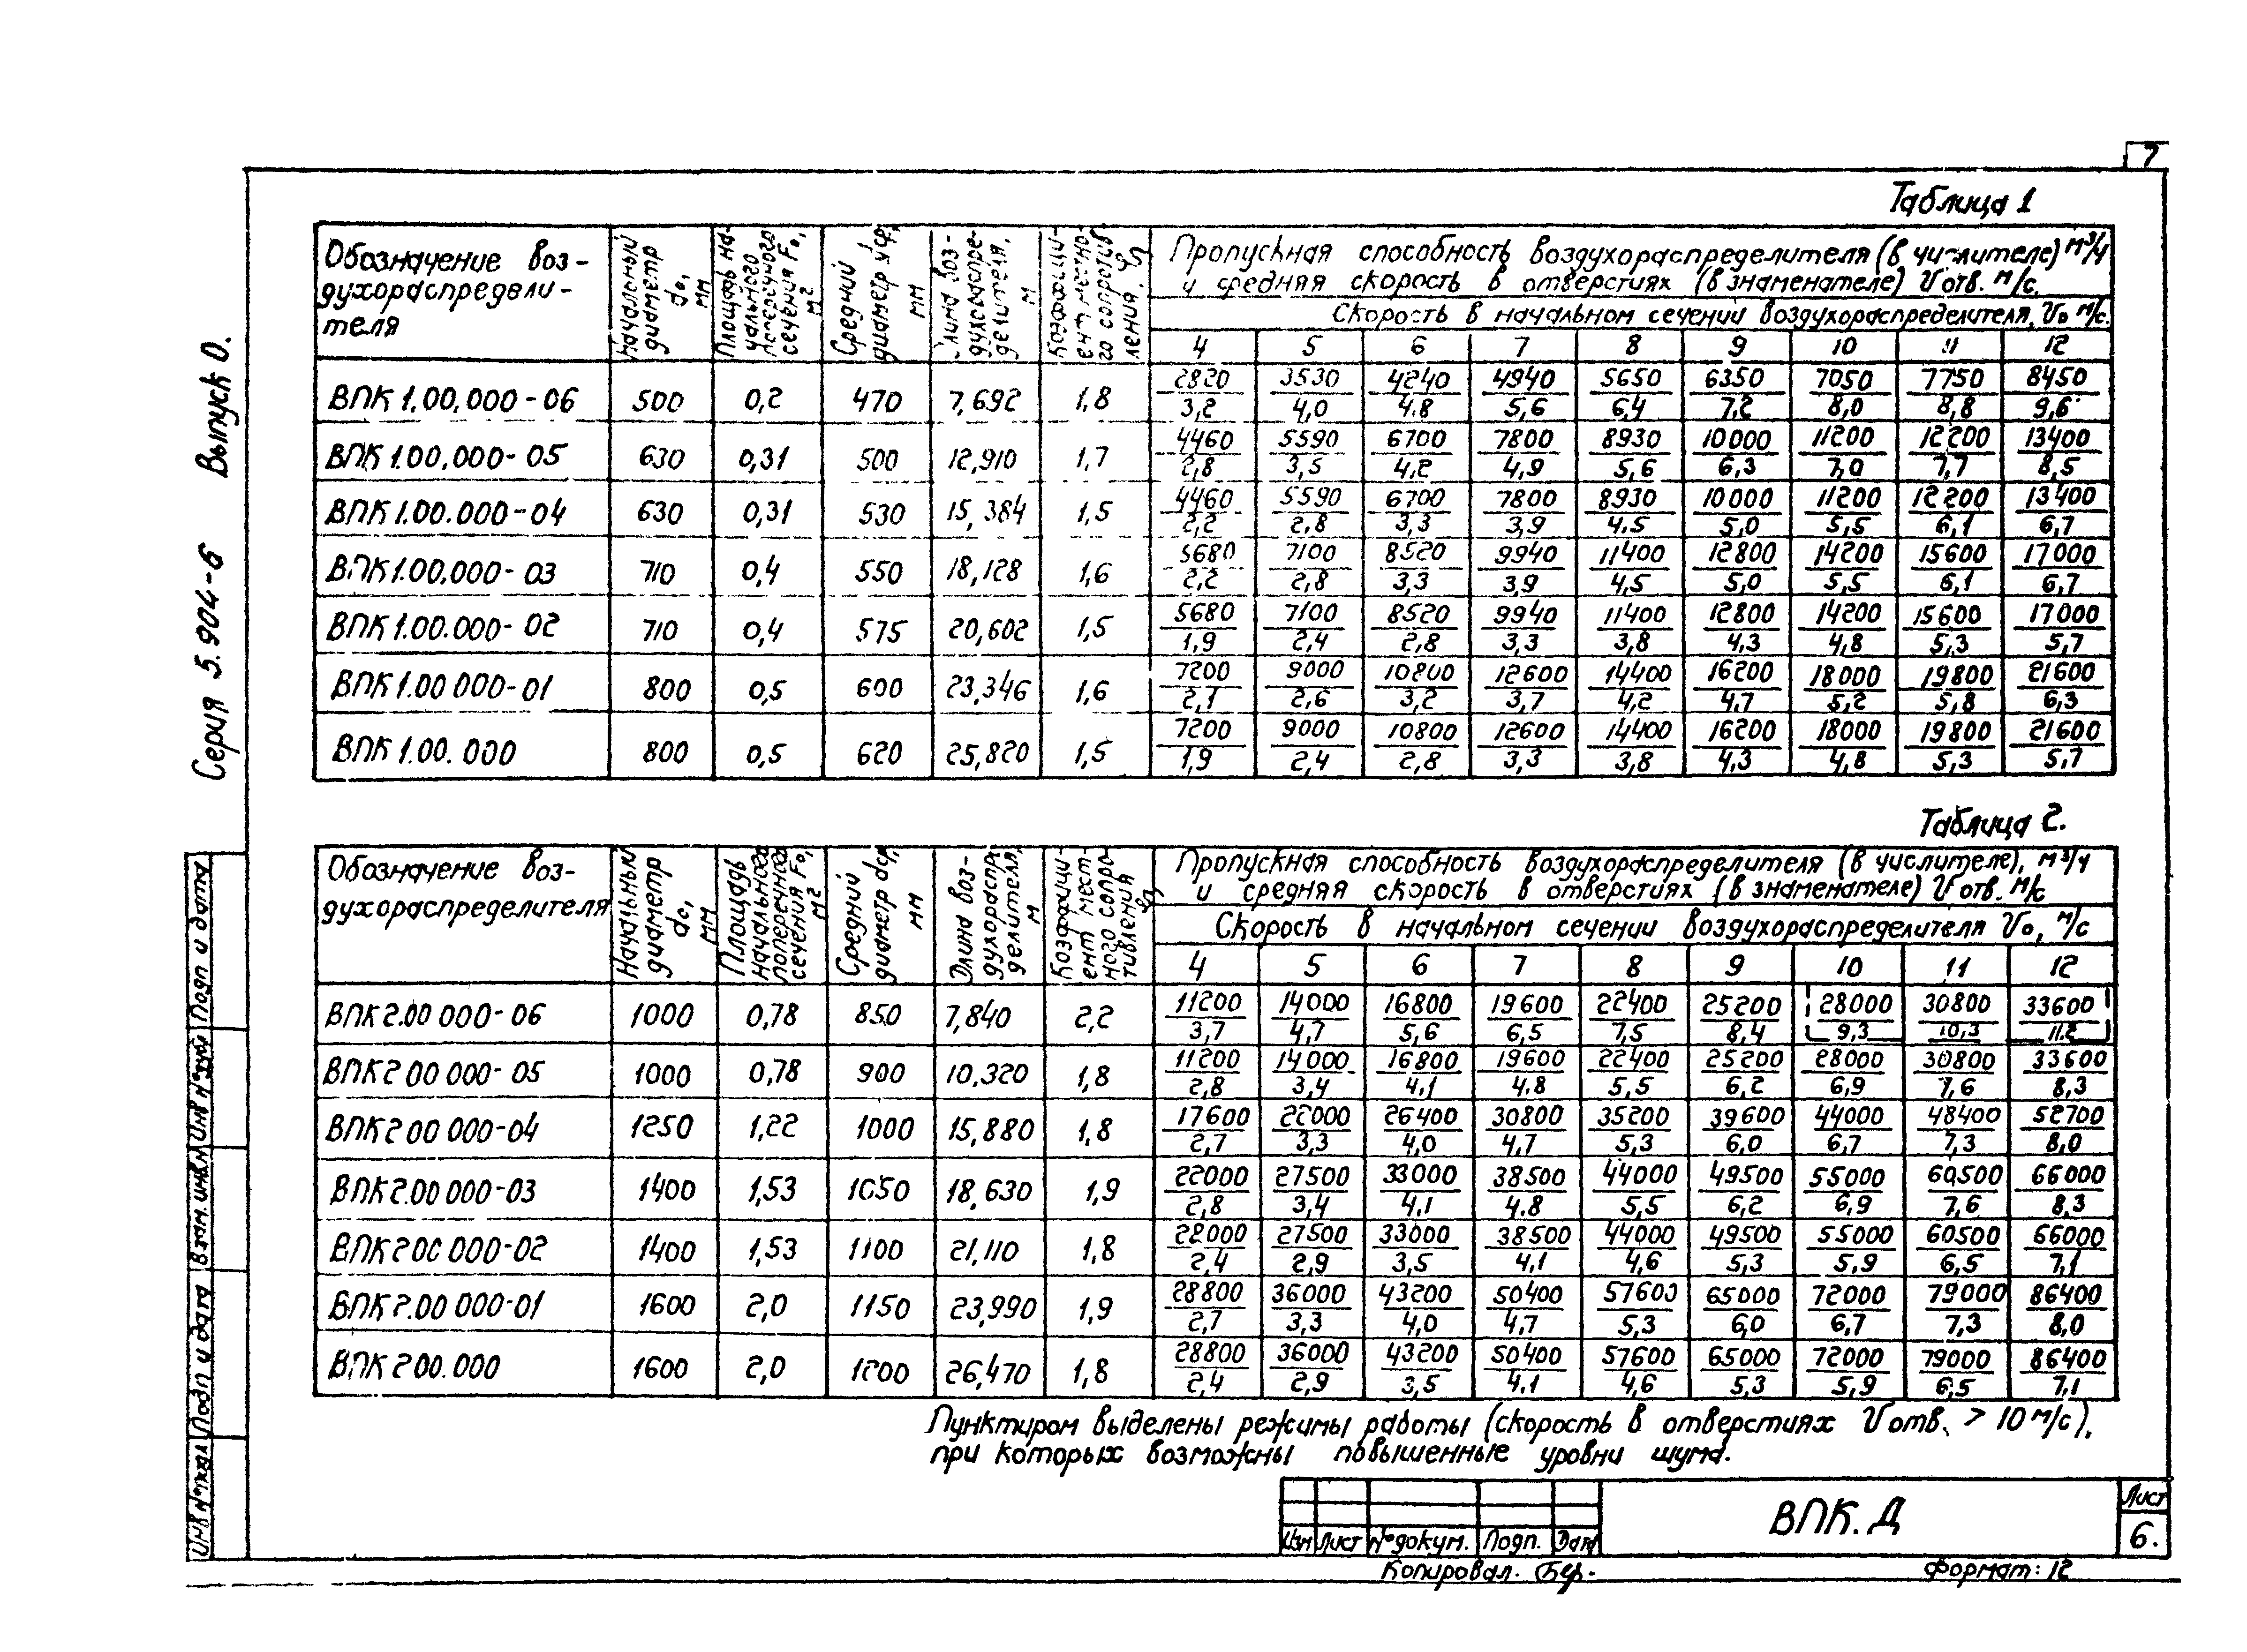 7
Серия 5.904-6 Выпуск 0.
Таблица 1
Обозначение воз-
духораспредели-
теля
Начальный диаметр d₀, мм
Площадь на-
чального
поперечного
сечения F₀,
м²
Средний диаметр dср, мм
Длина воз-
духораспре-
делителя,
м
Коэффици-
ент местно-
го сопротив
ления,
Пропускная способность воздухораспределителя (в числителе) м³/ч
и средняя скорость в отверстиях (в знаменателе) Vотв. м/с.
Скорость в начальном сечении воздухораспределителя, V₀ м/с.
4 5 6 7 8 9 10 11 12
ВПК 1.00.000-06 500 0,2 470 7,692 1,8 2820/3,2 3530/4,0 4240/4.8 4940/5,6 5650/6,4 6350/7,2 7050/8,0 7750/8,8 8450/9,6
ВПК 1.00.000-05 630 0,31 500 12,910 1,7 4460/2,8 5590/3,5 6700/4,2 7800/4,9 8930/5,6 10000/6,3 11200/7,0 12200/7,7 13400/8,5
ВПК 1.00.000-04 630 0,31 530 15,384 1,5 4460/2,2 5590/2,8 6700/3,3 7800/3,9 8930/4,5 10000/5,0 11200/5,5 12200/6,1 13400/6,7
ВПК 1.00.000-03 710 0,4 550 18,128 1,6 5680/2,2 7100/2,8 8520/3,3 9940/3,9 11400/4,5 12800/5,0 14200/5,5 15600/6,1 17000/6,7
ВПК 1.00.000-02 710 0,4 575 20,602 1,5 5680/1,9 7100/2,4 8520/2,8 9940/3,3 11400/3,8 12800/4,3 14200/4,8 15600/5,3 17000/5,7
ВПК 1.00 000-01 800 0,5 600 23,346 1,6 7200/2,1 9000/2,6 10800/3,2 12600/3,7 14400/4,2 16200/4,7 18000/5,2 19800/5,8 21600/6,3
ВПК 1.00.000 800 0,5 620 25,820 1,5 7200/1,9 9000/2,4 10800/2,8 12600/3,3 14400/3,8 16200/4,3 18000/4,8 19800/5,3 21600/5,7
Таблица 2.
Обозначение воз-
духораспределителя
Начальный диаметр d₀, мм
Площадь
начального
поперечного
сечения F₀,
м²
Средний диаметр dср, мм
Длина воз-
духораспре
делителя,
м
Коэффици-
ент мест-
ного сопро-
тивления
Пропускная способность воздухораспределителя (в числителе), м³/ч
и средняя скорость в отверстиях (в знаменателе) Vотв. м/с
Скорость в начальном сечении воздухораспределителя V₀, м/с
4 5 6 7 8 9 10 11 12
ВПК 2.00 000-06 1000 0,78 850 7,840 2,2 11200/3,7 14000/4,7 16800/5,6 19600/6,5 22400/7,5 25200/8,4 28000/9,3 30800/10,3 33600/11,2
ВПК 2 00 000-05 1000 0,78 900 10,320 1,8 11200/2,8 14000/3,4 16800/4,1 19600/4.8 22400/5,5 25200/6,2 28000/6,9 30800/7,6 33600/8,3
ВПК 2 00 000-04 1250 1,22 1000 15,880 1,8 17600/2,7 22000/3,3 26400/4,0 30800/4,7 35200/5,3 39600/6,0 44000/6,7 48400/7,3 52700/8,0
ВПК 2.00 000-03 1400 1,53 1050 18,630 1,9 22000/2,8 27500/3,4 33000/4,1 38500/4.8 44000/5,5 49500/6,2 55000/6,9 60500/7,6 66000/8,3
ВПК 2 00 000-02 1400 1,53 1100 21,110 1,8 22000/2,4 27500/2,9 33000/3,5 38500/4,1 44000/4,6 49500/5,3 55000/5,9 60500/6,5 66000/7,1
ВПК 2.00 000-01 1600 2,0 1150 23,990 1,9 28800/2,7 36000/3,3 43200/4,0 50400/4,7 57600/5,3 65000/6,0 72000/6,7 79000/7,3 86400/8,0
ВПК 2 00.000 1600 2,0 1200 26,470 1,8 28800/2,4 36000/2,9 43200/3,5 50400/4.1 57600/4,6 65000/5,3 72000/5,9 79000/6,5 86400/7,1
Пунктиром выделены режимы работы (скорость в отверстиях Vотв. > 10 м/с),
при которых возможны повышенные уровни шума.
Инв № подл Подп и дата Взам. инв № Инв № дубл Подп и дата
Изм Лист № докум. Подп. Дата
ВПК.Д
Лист
6.
Копировал. Бер.
Формат: 12